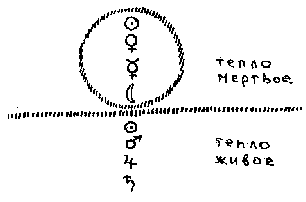 ☉
♀
☿
☾
тепло
мертвое
☉
♂
♃
♄
тепло
живое